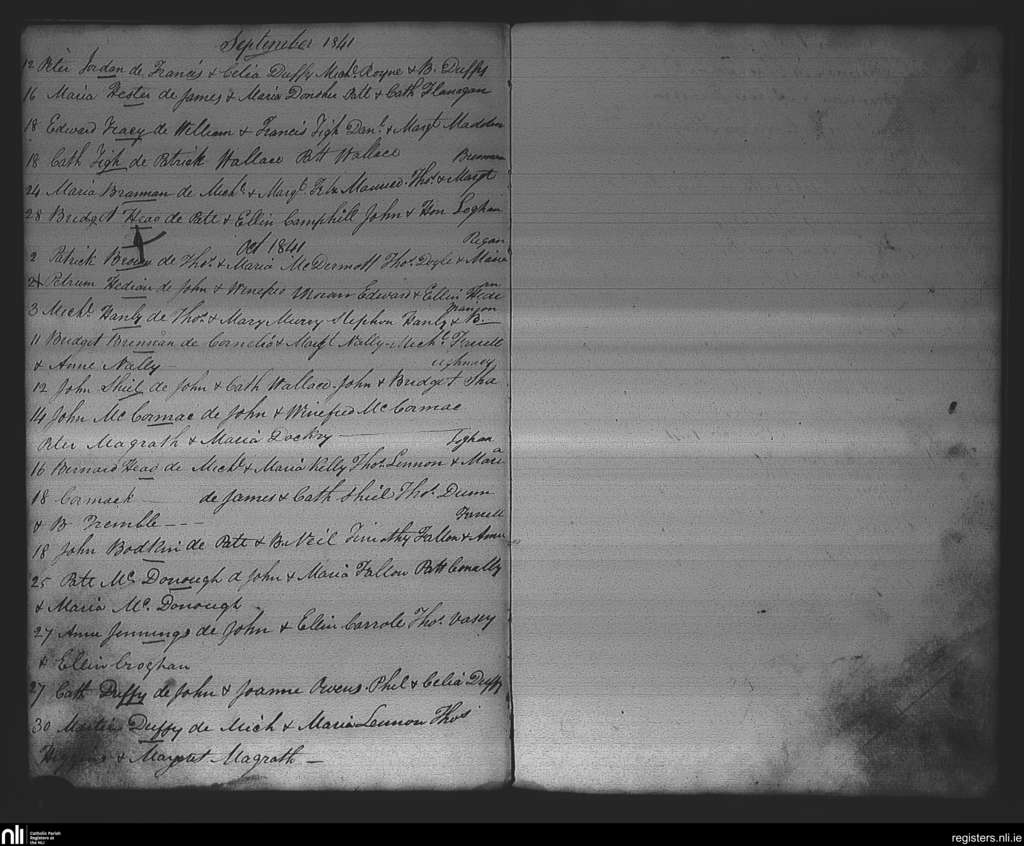 September 1841
12 Peter Jordan de Francis & Celia Duffy Michl. Royne & B. Duffy
16 Maria Hester de James & Maria Donohe Patt & Cath Flanagan
18 Edward Tracy de William & Francis Tigh Danl. & Margt Madden
18 Cath Tigh de Patrick Wallace Patt Wallace
Brennan
24 Maria Brannan de Michl & Margt Thos. & Margt
28 Bridget Heao de Patt & Ellin Camphill John & Hon Loghan
Oct 1841
Regan
2 Patrick de Thos. & Maria McDermott Thos. Doyle & Maria
2 Petrum Hedian de John & Winefred Moran Edward & Ellin
3 Michl. Hanly de Thos. & Mary Murry Stephen Hanly & B.
11 Bridget Brennan de Cornelio & Margt Nally Michl. Farrell
& Anne Nally
12 John Shiel de John & Cath Wallace John & Bridget
14 John McCormac de John & Winefred McCormac
Peter Magrath & Maria Dockry
Loghan
16 Bernard Heao de Michl & Maria Kelly Thos. Lennon & Maria
18 Cormack de James & Cath Shiel Thos. Dunn
& B Tremble
Farrell
18 John Bodkin de Patt & B Neil Timothy Fallon & Anne
25 Patt Mc. Donough d John & Maria Fallon Patt Conally
& Maria Mc. Donough
27 Anne Jennings de John & Ellin Carrole Thos. Vasey
& Ellin Croghan
27 Cath Duffy de John & Joanne Owens Phil & Celia Duffy
30 Martin Duffy de Mich & Maria Lennon Thos
Higgins & Margret Magrath
nli Catholic Parish
Registers at
the NLI
registers.nli.ie